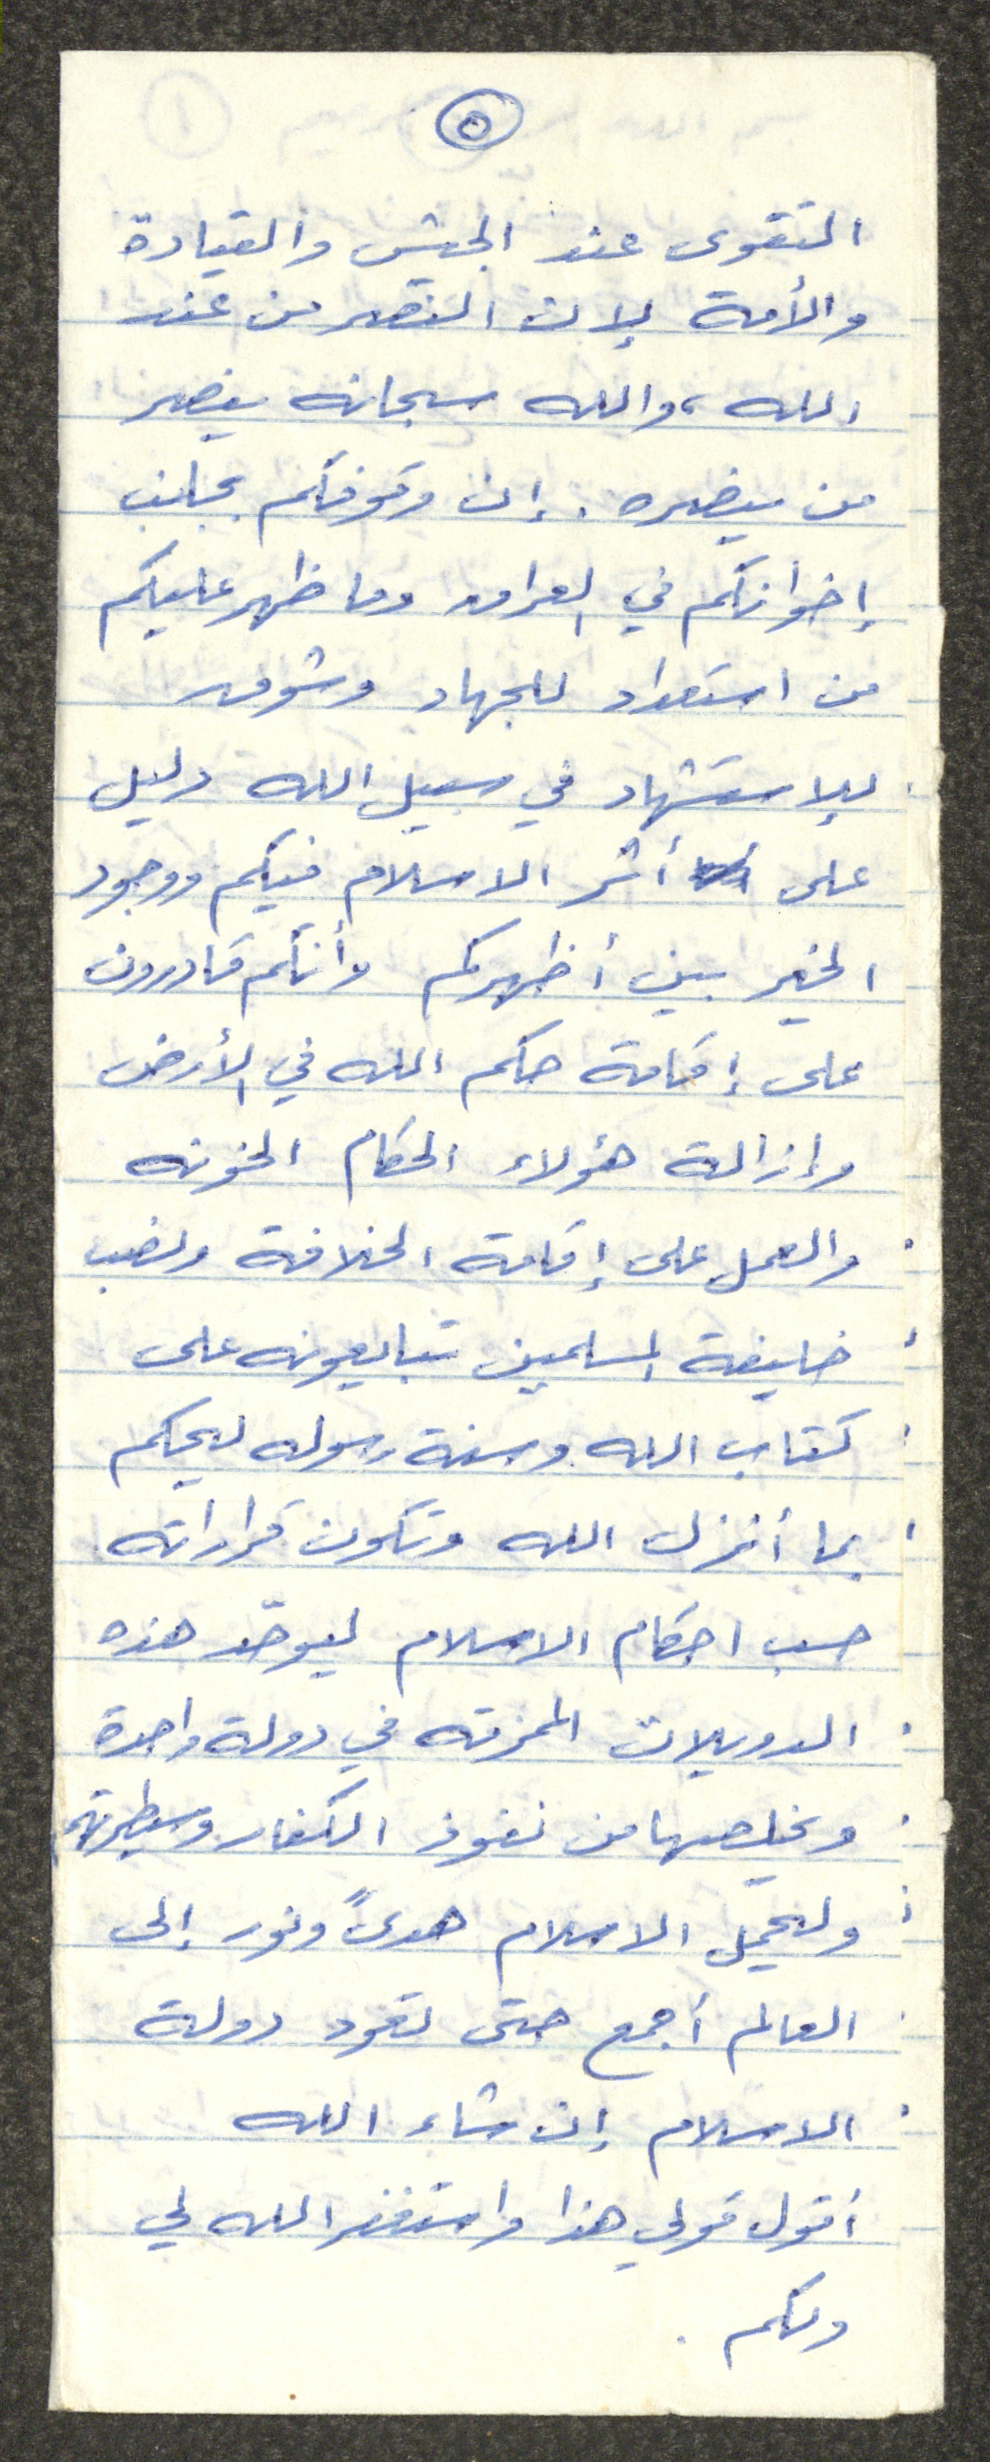 ٥
التقوى عند الجيش والقيادة
والأمة لإن النصر من عند
الله ، والله سبحانه ينصر
من ينصره . إن وقوفكم بجانب
إخوانكم في العراق وما ظهر عليكم
من استعداد للجهاد وشوق
للإستشهاد في سبيل الله دليل
على أثر الاسلام فيكم ووجود
الخير بين أظهركم وأنكم قادرون
على إقامة حكم الله في الأرض
وإزالة هؤلاء الحكام الخونه
والعمل على إقامة الخلافة ونصب
خليفة المسلمين تبايعونه على
كتاب الله وسنة رسوله ليحكم
بما أنزل الله وتكون قراراته
حسب احكام الاسلام ليوحّد هذه
الدويلات الممزقه في دولة واحدة
ويخلصها من نفوذ الكفار وسيطرتهم
وليحمل الاسلام هدىً ونور إلى
العالم أجمع حتى تعود دولة
الاسلام إن شاء الله
أقول قولي هذا واستغفر الله لي
ولكم .